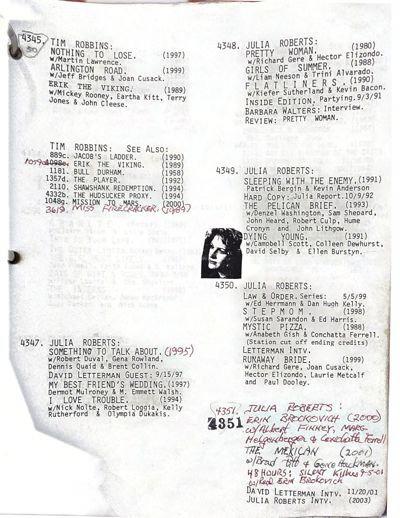 4345.
50
TIM ROBBINS:
NOTHING TO LOSE. (1997)
w/Martin Lawrence.
ARLINGTON ROAD. (1999)
w/Jeff Bridges & Joan Cusack.
ERIK THE VIKING. (1989)
w/Mickey Rooney, Eartha Kitt, Terry
Jones & John Cleese.
TIM ROBBINS: SEE ALSO:
889c. JACOB'S LADDER. (1990)
ERIK THE VIKING. (1989)
1181. BULL DURHAM. (1958)
1357d. THE PLAYER. (1992)
2110. SHAWSHANK REDEMPTION. (1994)
4332b. THE HUDSUCKER PROXY. (1994)
1048g. MISSION TO MARS. (2000)
3619. MISS FIRECRACKER. (1989)
4347. JULIA ROBERTS:
SOMETHING TO TALK ABOUT. (1995)
w/Robert Duval, Gena Rowland,
Dennis Quaid & Brent Collin.
DAVID LETTERMAN GUEST: 9/15/97
MY BEST FRIEND'S WEDDING. (1997)
Dermot Mulroney & M. Emmett Walsh.
I LOVE TROUBLE. (1994)
w/Nick Nolte, Robert Loggia, Kelly
Rutherford & Olympia Dukakis.
4348. JULIA ROBERTS:
PRETTY WOMAN. (1980)
w/Richard Gere & Hector Elizondo.
GIRLS OF SUMMER. (1988)
w/Liam Neeson & Trini Alvarado.
FLATLINERS. (1990)
w/Kiefer Sutherland & Kevin Bacon.
INSIDE EDITION, Partying.9/3/91
BARBARA WALTERS: Interview.
REVIEW: PRETTY WOMAN.
4349. JULIA ROBERTS:
SLEEPING WITH THE ENEMY.(1991)
Patrick Bergin & Kevin Anderson
HARD COPY: Julia Report.10/9/92
THE PELICAN BRIEF. (1993)
w/Denzel Washington, Sam Shepard,
John Heard, Robert Culp, Hume
Cronyn and John Lithgow.
DYING YOUNG. (1991)
w/Campbell Scott, Colleen Dewhurst,
David Selby & Ellen Burstyn.
4350. JULIA ROBERTS:
LAW & ORDER. Series: 5/5/99
w/Ed Herrmann & Dan Hugh Kelly.
STEPMOM. (1998)
w/Susan Sarandon & Ed Harris.
MYSTIC PIZZA. (1988)
w/Anabeth Gish & Conchatta Ferrell.
(Station cut off ending credits)
LETTERMAN INTV.
RUNAWAY BRIDE. (1999)
w/Richard Gere, Joan Cusack,
Hector Elizondo, Laurie Metcalf
and Paul Dooley.
4351. JULIA ROBERTS:
4351 ERIN BROCKOVICH (2000)
w/Albert Finney, Marg
Helgenberger & Conchatta Ferrell
THE MEXICAN (2001)
w/Brad Pitt & Gene Hackman.
48 HOURS: Silent Killer 4-5-01
w/Real ERIN BROKOVICH
DAVID LETTERMAN INTV. 11/20/01
JULIA ROBERTS INTV. (2003)